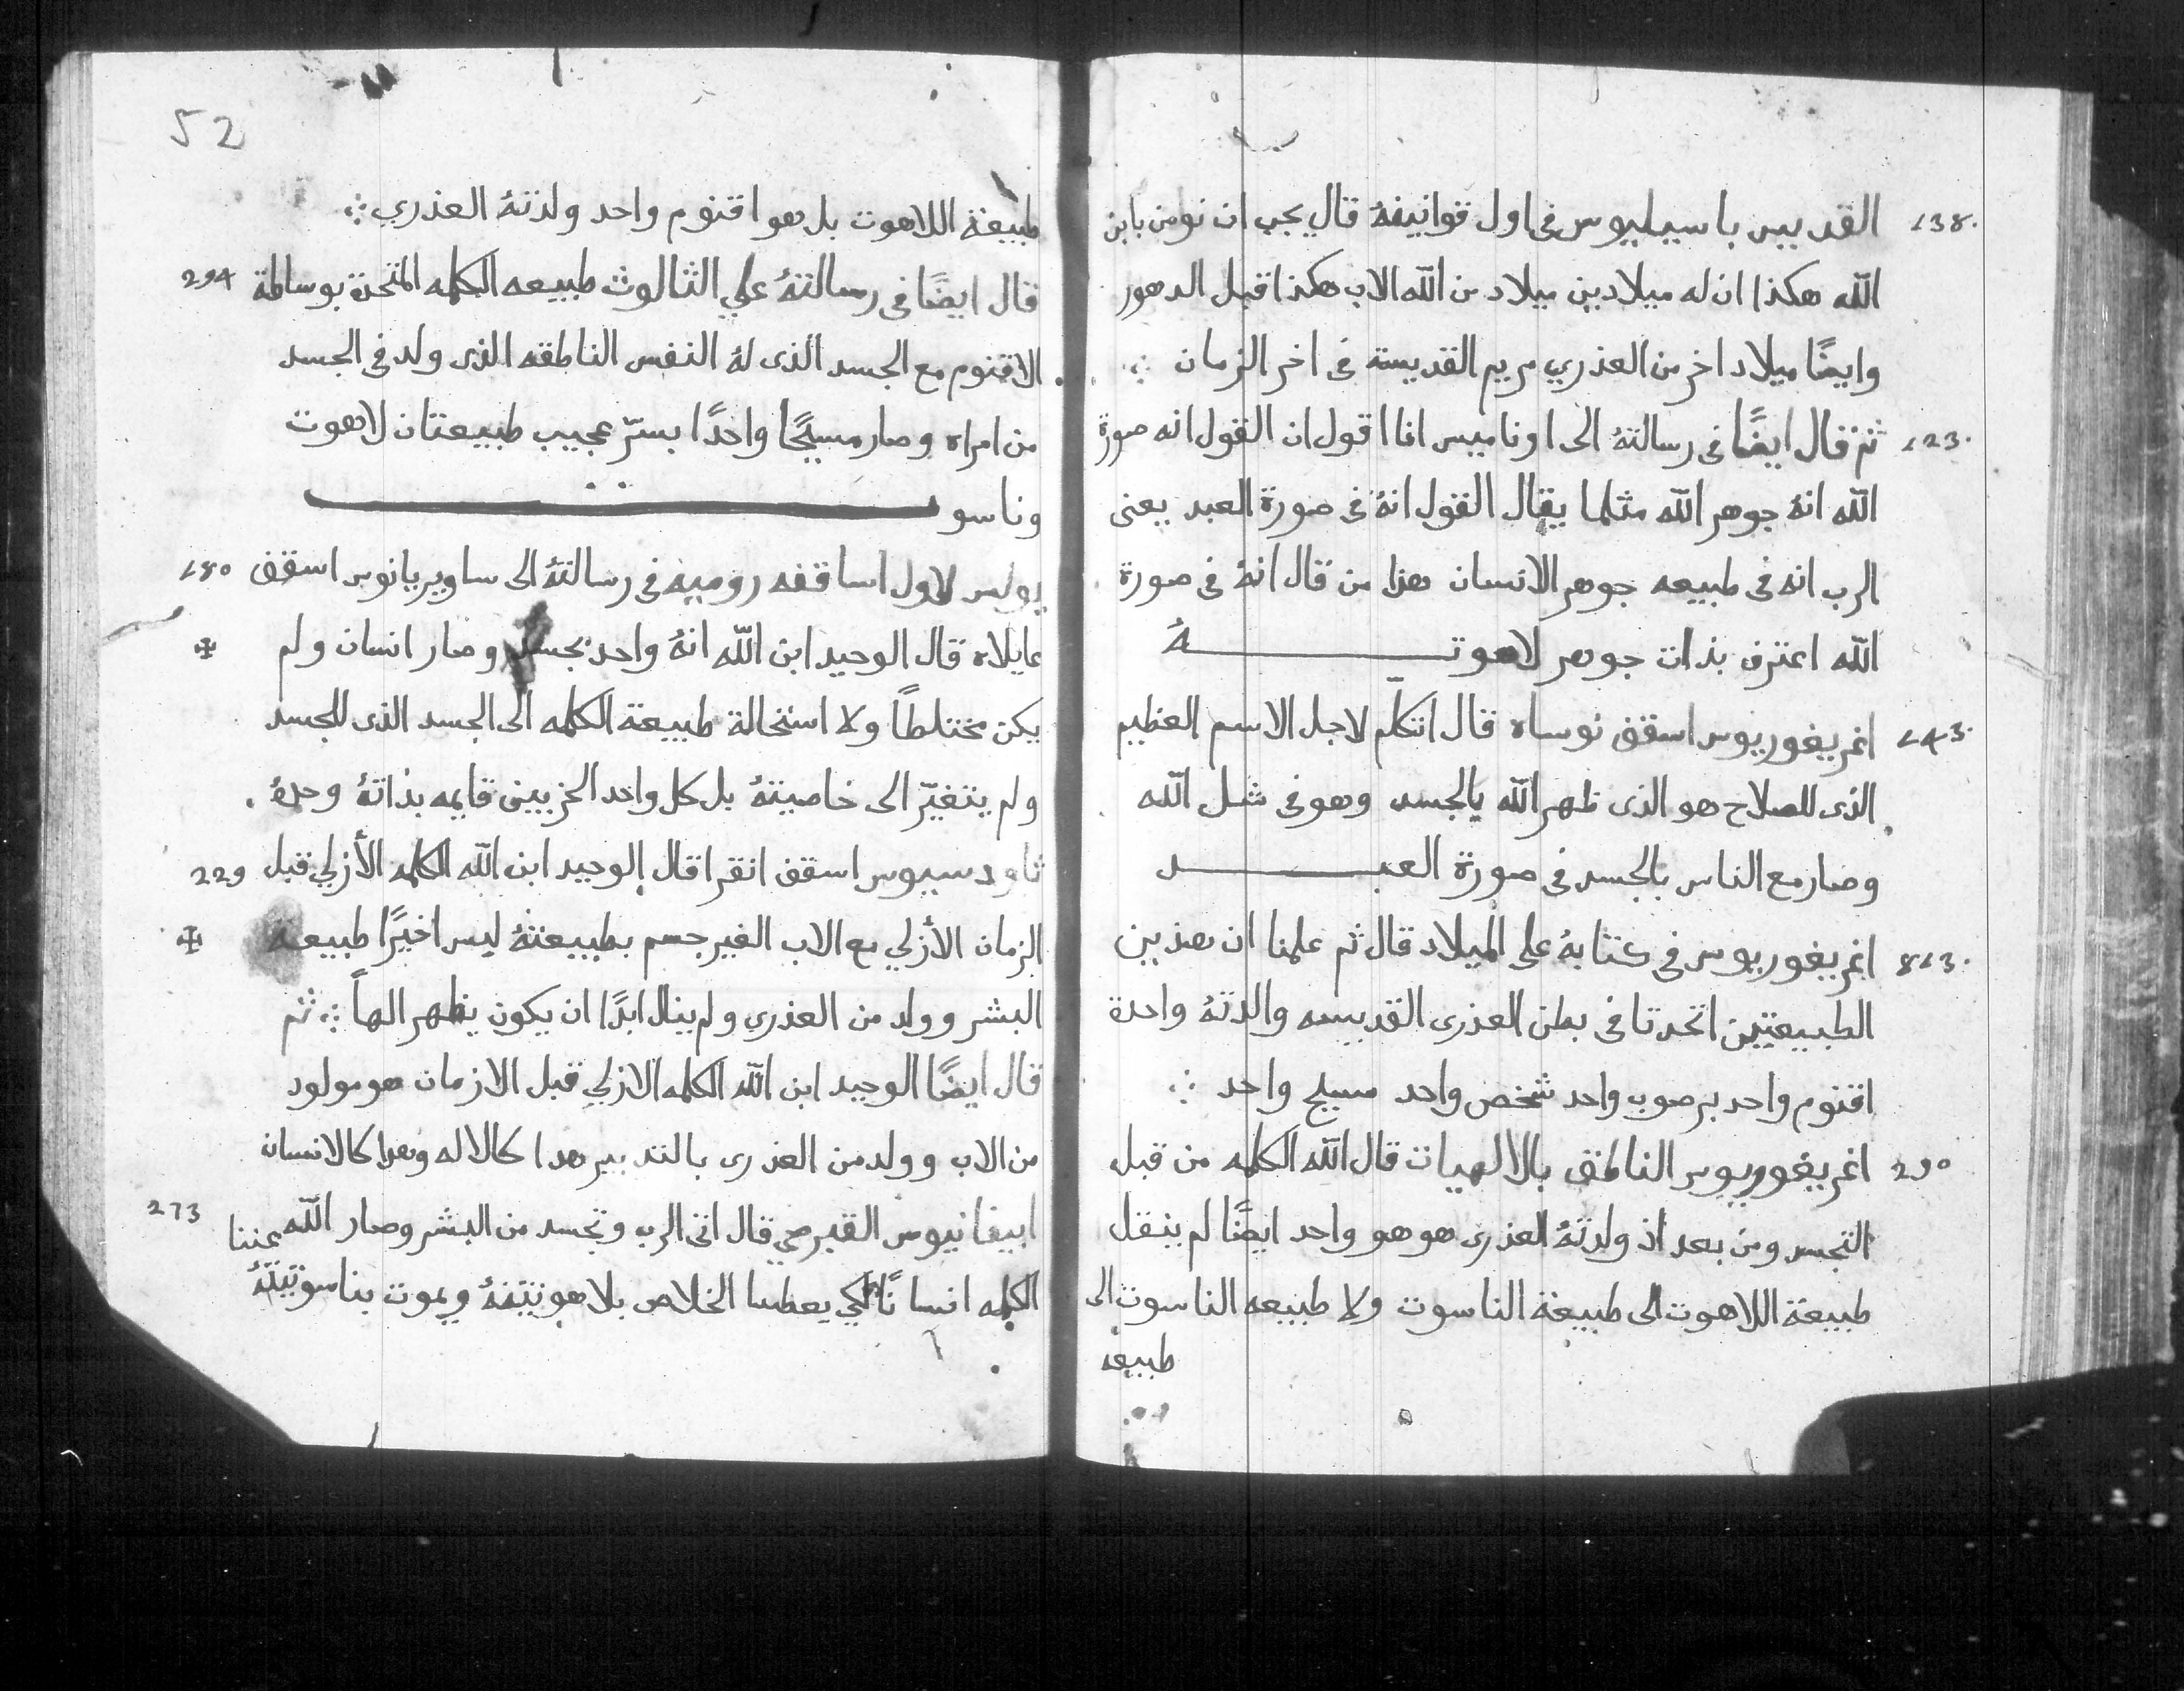 138. القديس باسيليوس فى اول قوانينهُ قال يجب ان نومن بابن
الله هكذا ان له ميلادين ميلاد من الله الاب هكذا قبل الدهور
وايضًا ميلاد اخر من العذري مريم القديسة فى اخر الزمان ∴
123. ثم قال ايضًا فى رسالتهُ الى اوناميس انا اقول ان القول انه صورة
الله انهُ جوهر الله مثلما يقال القول انهُ فى صورة العبد يعنى
الرب انه فى طبيعه جوهر الانسان هذا من قال انهُ فى صورة
الله اعترف بذات جوهر لاهوتـــــهُ
143. اغريغوريوس اسقف نوساه قال اتكلم لاجل الاسم العظيم
الذى للصلاح هو الذى ظهر الله بالجسد وهو فى شكل الله
وصار مع الناس بالجسد فى صورة العبـــــد
813. اغريغوريوس فى كتابهُ على الميلاد قال ثم علمنا ان هذين
الطبيعتين اتحدتا فى بطن العذرى القديسه والدتهُ واحدة
اقنوم واحد برصوب واحد شخص واحد مسيح واحد ∴
290 اغريغوريوس الناطق بالالهيات قال الله الكلمه من قبل
التجسد ومن بعد اذ ولدتهُ العذرى هو هو واحد ايضًا لم ينقل
طبيعة اللاهوت الى طبيعة الناسوت ولا طبيعه الناسوت الى
طبيعة
52
طبيعة اللاهوت بل هو اقنوم واحد ولدتهُ العذري ∴
294 قال ايضًا فى رسالتهُ علي الثالوث طبيعه الكلمه المتحدة بوساطة
الاقنوم مع الجسد الذى لهُ النفس الناطقه الذى ولد فى الجسد
من امراه وصار مسيحًا واحدًا بسرّ عجيب طبيعتان لاهوت
وناسوـــــت
180 يولس لاول اساقفه روميه فى رسالتهُ الى ساويريانوس اسقف
عايلاه قال الوحيد ابن الله انهُ واحد بجسد وصار انسان ولم ✠
يكن مختلطاً ولا استحالة طبيعة الكلمه الى الجسد الذى للجسد
ولم يتغيّر الى خاصيتهُ بل كل واحد الحزبين قايمه بذاتهُ وحدهُ.
229 تاودسيوس اسقف انقرا قال الوحيد ابن الله الكلمه الأزلي قبل
الزمان الأزلي مع الاب الغير جسم بطبيعتهُ لبس اخيرًا طبيعه ✠
البشر وولد من العذري ولم ينال ابدًا ان يكون يظهر الهاً ∴ ثم
قال ايضًا الوحيد ابن الله الكلمه الازلي قبل الازمان هو مولود
من الاب وولد من العذرى بالتدبير هدا كالاله وهدا كالانسان
273 ابيفانيوس القبرصي قال اتى الرب وتجسد من البشر وصار الله
الكلمه انسانًا لكي يعطينا الخلاص بلاهوتيتهُ ويموت بناسوتيتهُ